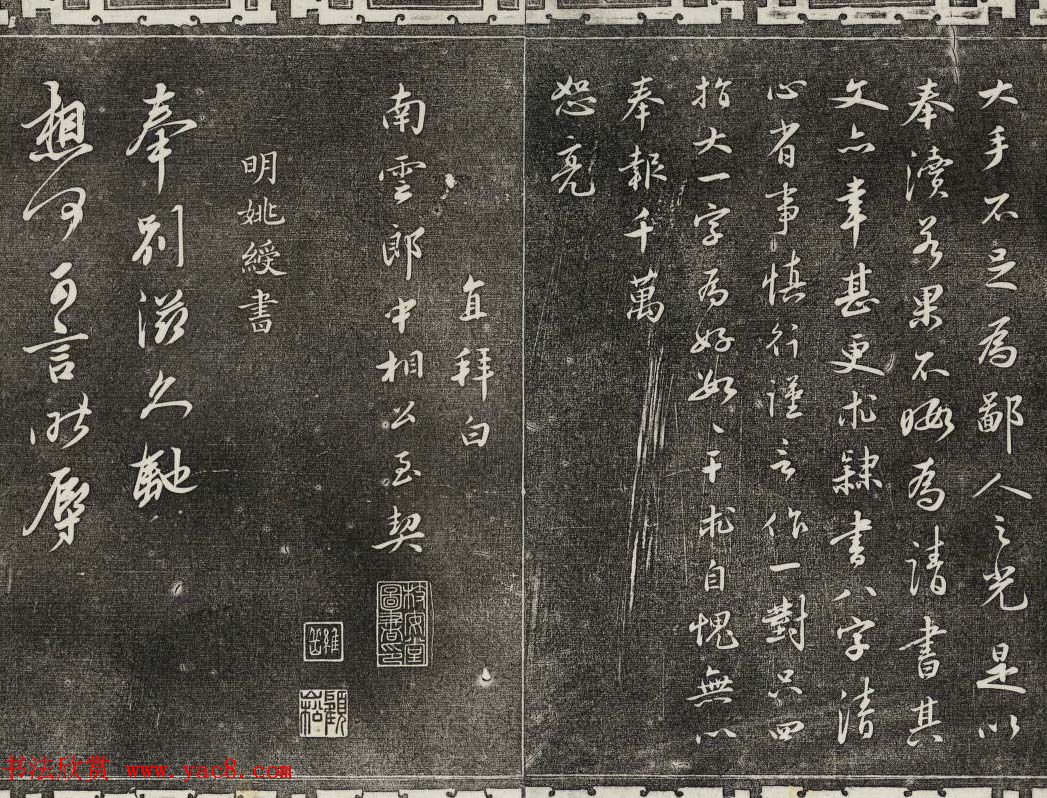 大手不足為鄙人之光是以
奉瀆若果不晦為請書其
文亦幸甚更求隸書八字清
心省事慎行謹言作一對只四
指大一字為好數〻干求自愧無以
奉報千萬
恕亮
直拜白
南雲郎中相公至契
明姚綬書
奉別滋久馳
想何可言昨辱
書法欣赏 www.yac8.com